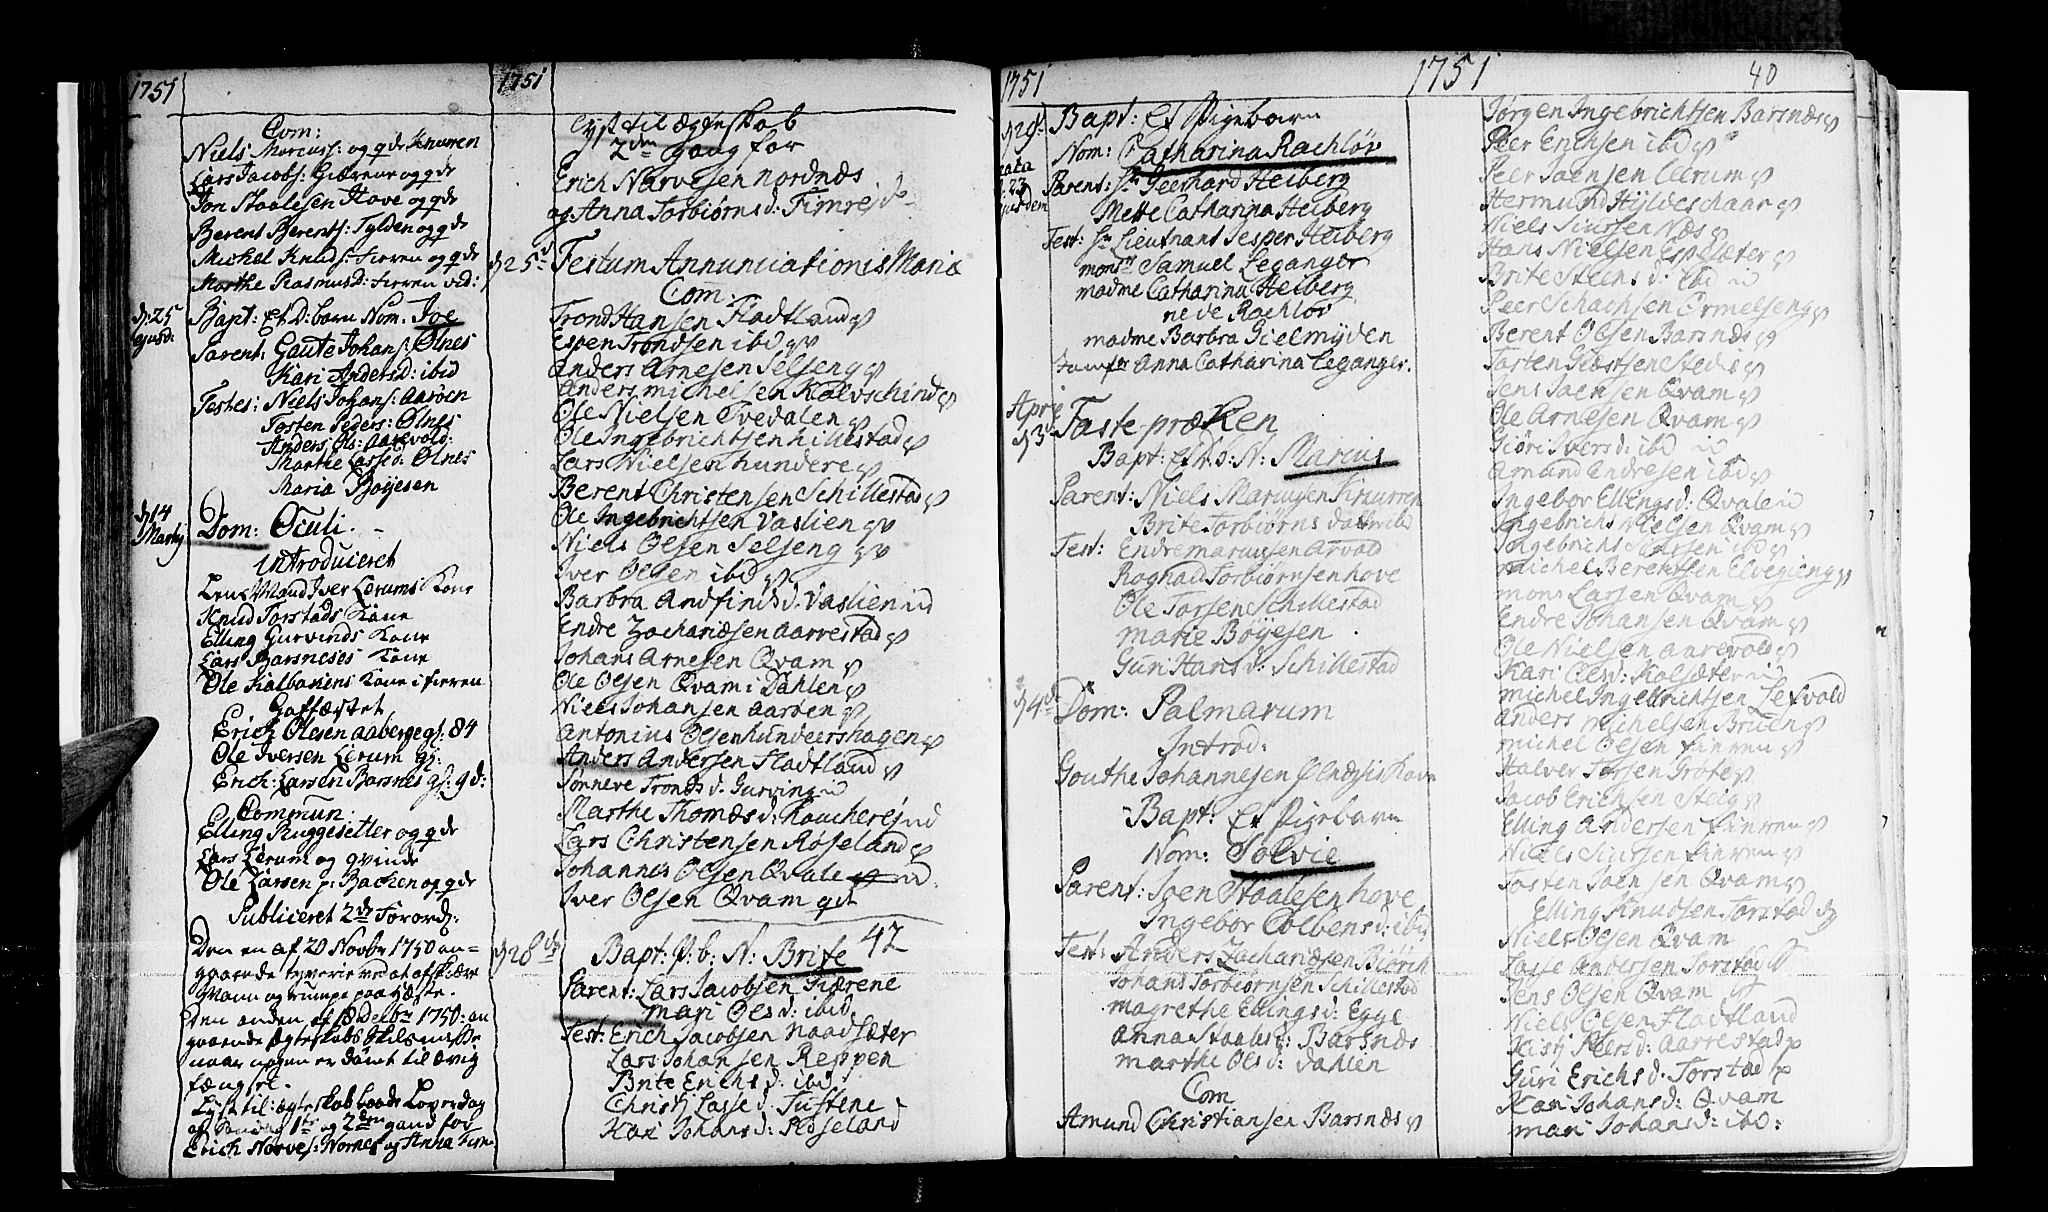 1751
Com:
Niels Marcuss: og qde Knuren
Lars Jacobs: Fiærene og qde
Jon Staalesen Hove og qde
Berent Berents: Tylden og qde
Michel Knuds: Fieren og qde
Marthe Rasmusd: Fieren vid:
d. 25 ejusd:
Bapt: et D: barn Nom. Joe
Parent: Gaute Johans: Ølnes
Kari Andersd: ibid
Testes: Niels Johans: Aarøen
Tosten Peders: Ølnes
Anders Ols: Aarevold:
Marthe Lassed: Ølnes
Maria Bøyesen
d. 14 Martij
Dom: Oculi.
Introduceret
Iver Lerums Kone
Knud Torstads Kone
Elling Gurvinds Kone
Lars Barsneses Kone
Ole Kalbakens Kone i fieren
Erich Olesen Aaberge gl: 84
Ole Iversen Lerum gl:
Erich Larsen Barsnes gl: 9 d:
Commun:
Elling Ruggesetter og qde
Lars Lerum og qvinde
Ole Larsen p: Backen og qde
Publiceret 2de Forord:
Den en af 20 Novbr 1750 an=
gaaende tyverie ved at afskiære
Mann og rumpe paa Hæste.
Den anden af 18 decbr 1750: an
gaaende Ægteskabs Skilsmisse
naar nogen er dømt til ævig
fængsel.
Lyst til ægteskab baade Løverdag
og Søndag 1te og 2den gang for
Erich Narves: Nornes og Anna Fim
1751
Lyst til ægteskab
2den gang for
Erich Narvesen Nordnæs
og Anna Torbiørnsd: Fimrejde
d. 25de
Festum Annunciationis Mariæ
Com:
Trond Hansen Fladtland
Espen Trondsen ibd
Anders Arnesen Selseng
Anders Michelsen Kalvschind
Ole Nielsen Tvedalen
Ole Ingebrichtsen Hillestad
Lars Nielsen Hundere
Berent Christensen Schillestad
Ole Ingebrichtsen Vaslien
Niels Olsen Selseng
Iver Olsen ibd
Barbra Andfindsd. Vaslien
Endre Zachariæsen Aarrestad
Johans Arnesen Qvam
Ole Olsen Qvam i Dahlen
Niels Johansen Aarøen
Antonius Olsen Hundershagen
Anders Andersen Fladtland
Sønneve Trondsd. Gurving
Marthe Thomæsd: Kouchere
Lars Christensen Røseland
Johannes Olsen Qvale
Iver Olsen Qvam
42
d. 28de
Bapt: P: b: N: Brite
Parent: Lars Jacobsen Fiærene
Mari Olsd: ibid
Test: Erich Jacobsen Naadsæter
Lars Johansen Reppen
Brite Erichsd: ibd.
Christj Lassed: Tustene
Kari Johansd: Røseland
1751
d. 29de
Bapt: Et Pigebarn
Nom: Catharina Rachløv
Parent: Sr Geerhard Heiberg
Mette Catharina Heiberg
Test: Sr Lieutnant Jesper Heiberg
monsr Samuel Leganger
madme Catharina Heiberg
ne de Rachløv
madme Barbra Gielmyden
Jomfr Anna Catharina Leganger.
April d. 3de
Faste-præken
Bapt: N: Marius
Parent: Niels Marcusen Knurren
Brite Torbiørns datter ibd
Test: Endre Marcusen Arvold
Rognald Torbiørnsen Hove
Ole Torsen Schillestad
Marie Bøyesen
Guri Hansd: Schillestad
d. 4de
Dom: Palmarum
Introd:
Gouthe Johannesen Ølnesis Kone
Bapt: Et Pigebarn
Nom: Solvie
Parent: Joen Staalesen Hove
Ingebor Colbensd: ibid
Test: Anders Zachariæsen Biørch
Johans Torbiørnsen Schillestad
Magrethe Ellingsd: Egge
Anna Staalesd: Barsnæs
Marthe Olsd: Dahlen
Com
Amund Christiansen Barsnæs
1751
40
Jørgen Ingebrichtsen Barsnæs
Peer Erichsen ibd
Peer Joensen Lerum
Hermund Hyldeschaar
Niels Siursen Næs
Hans Nielsen Espesæter
Brite Steensd: ibd
Peer Schachsen Ormelseng
Berent Olsen Barsnæs
Jens Joensen Qvam
Ole Arnesen Qvam
Giøri Iversd: ibd
Amund Endresen ibd
Ingebor Ellingsd: Qvale
Ingebricht Nielsen Qvam
Ingebricht Siursen ibd
Michel Berentsen Elvegieng
Mons Larsen Qvam
Endre Johansen Qvam
Ole Nielsen Aarevold
Kari Olsd: Kolsæter
Michel Ingebrichtsen Lefvold
Anders Michelsen Bruen
Michel Olsen Fieren
Halver Torsen Grote
Jacob Erichsen Steig
Elling Andersen Fieren
Niels Siursen Fieren
Tosten Joensen Qvam
Elling Knudsen Torstad
Niels Olsen Qvam
Lasse Andersen Torstad
Jens Olsen Qvam
Niels Olsen Fladtland
Kistj Peersd: Aarrestad
Guri Erichsd. Torstad
Kari Johansd: Qvam
Mari Johansd: ibd: